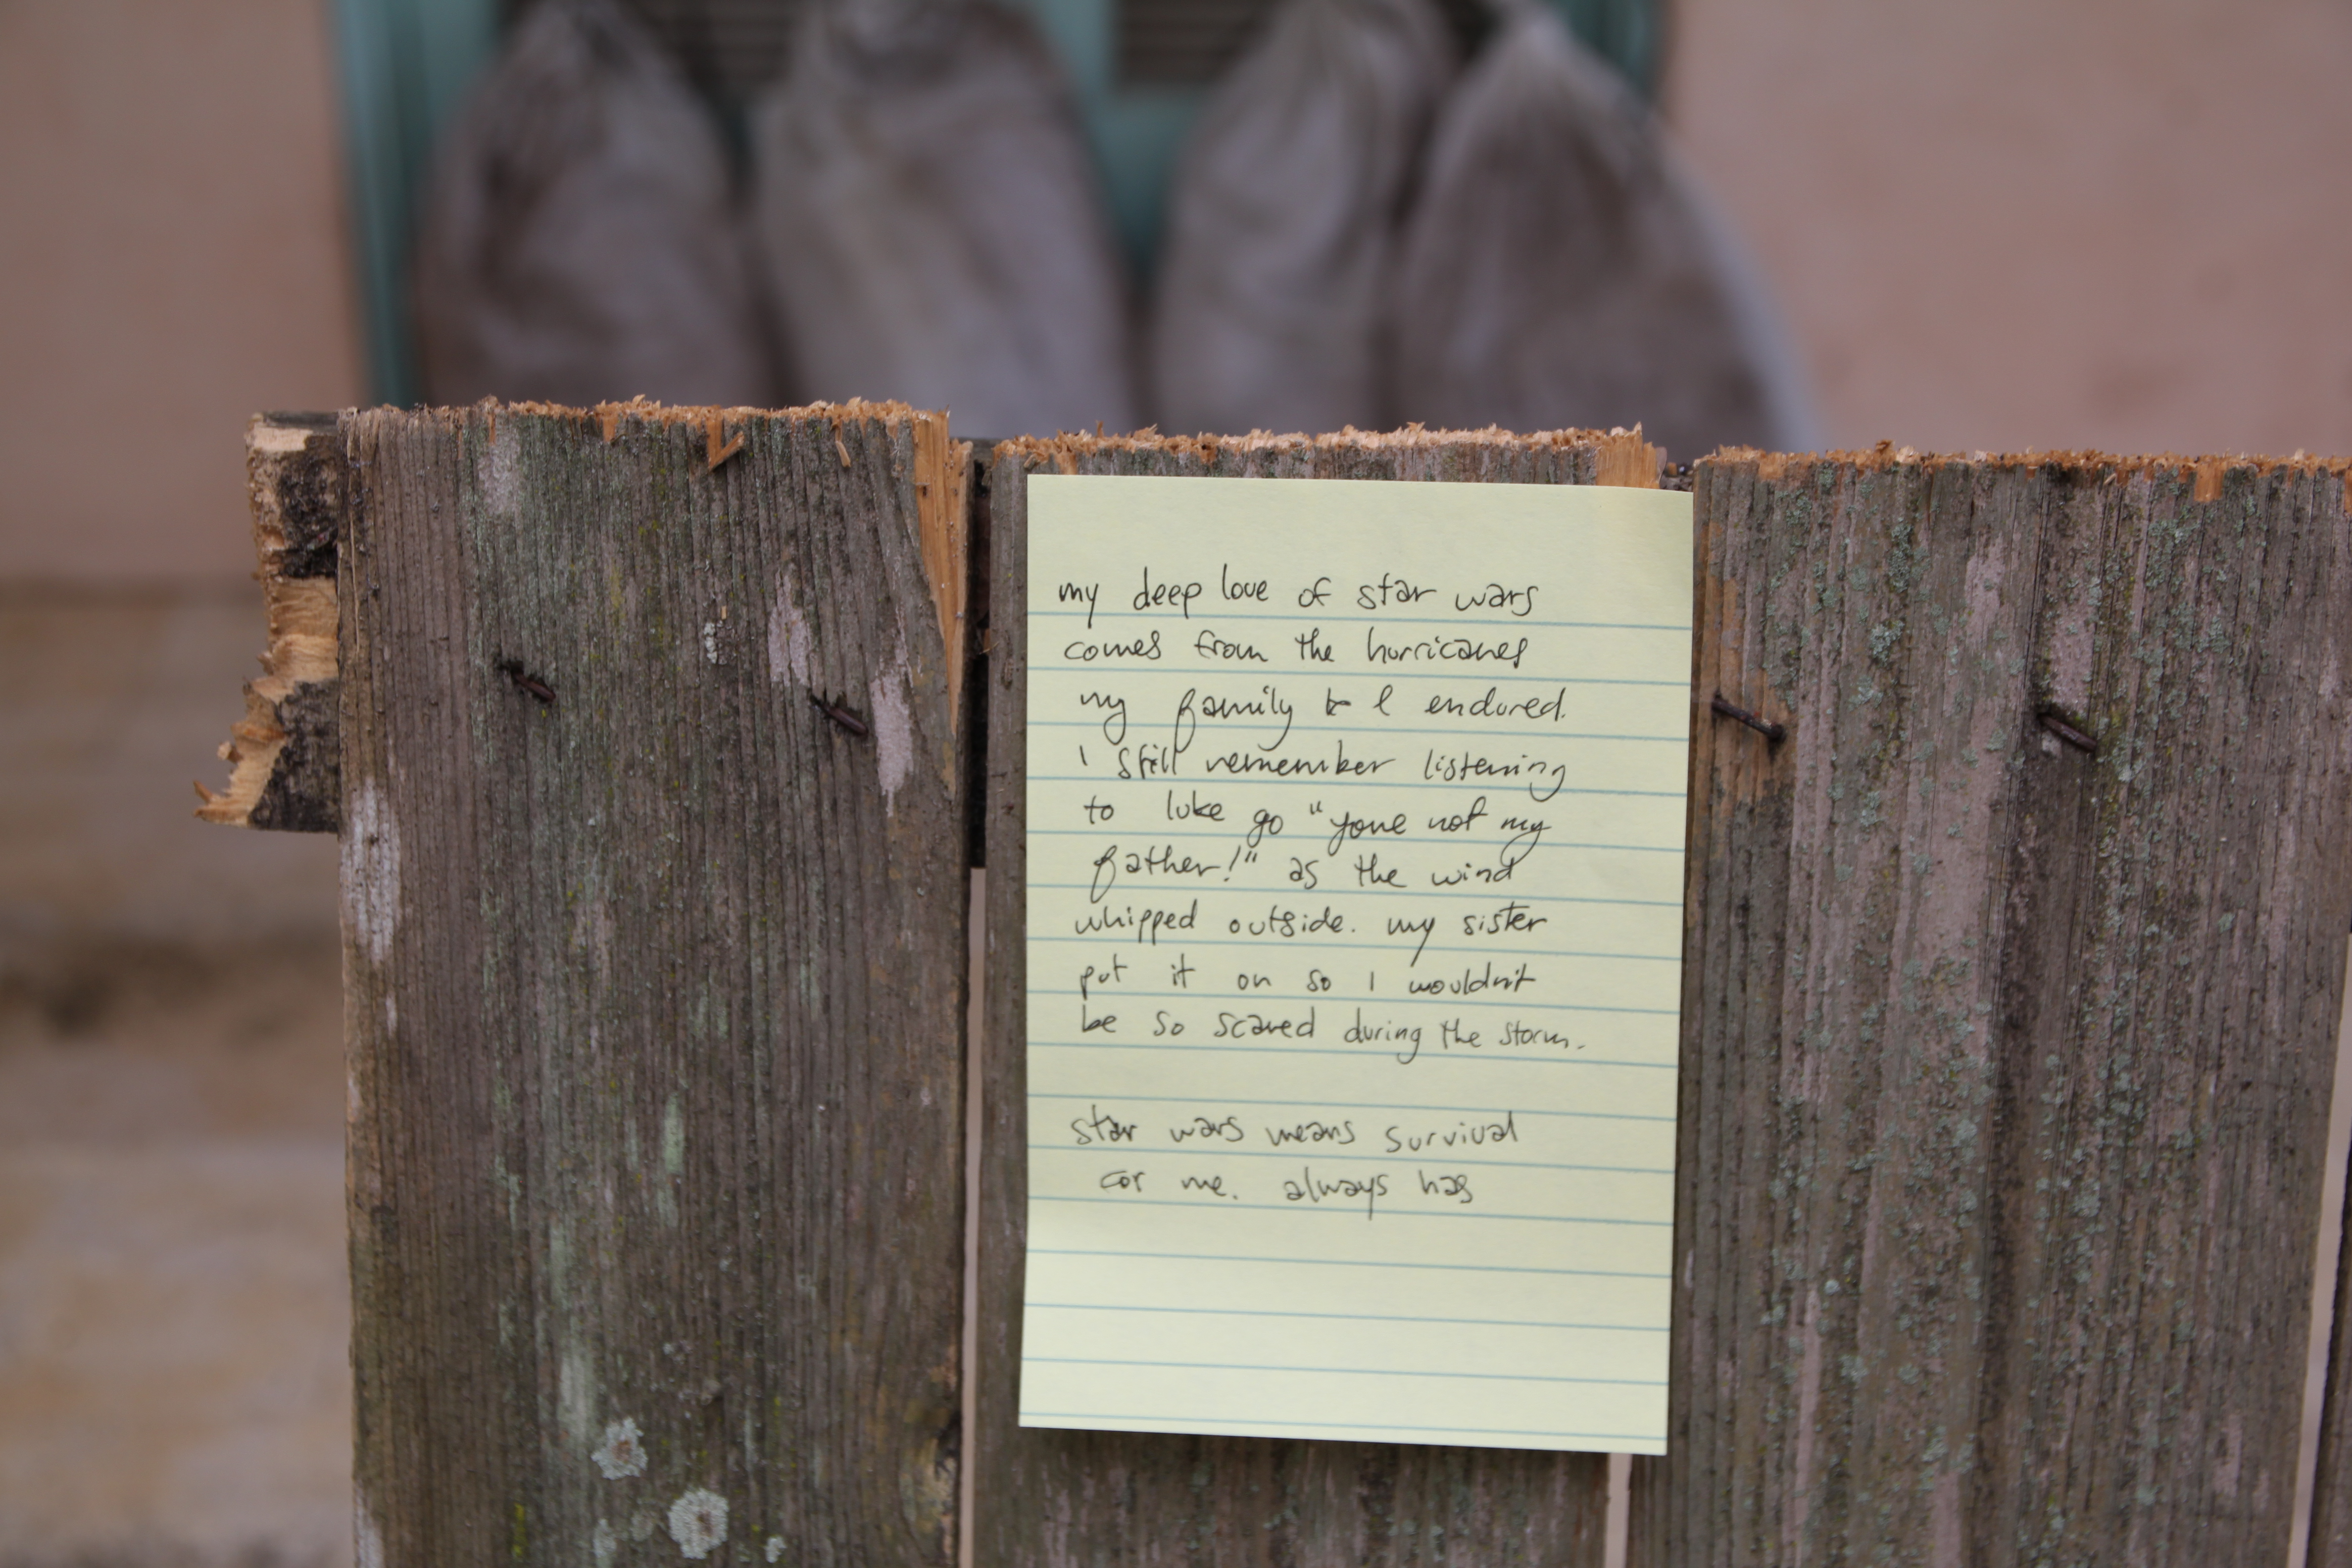 my deep love of star wars
comes from the hurricanes
my family & I endured.
I still remember listening
to luke go "you're not my
father!" as the wind
whipped outside. my sister
put it on so I wouldn't
be so scared during the storm.
star wars means survival
for me. always has